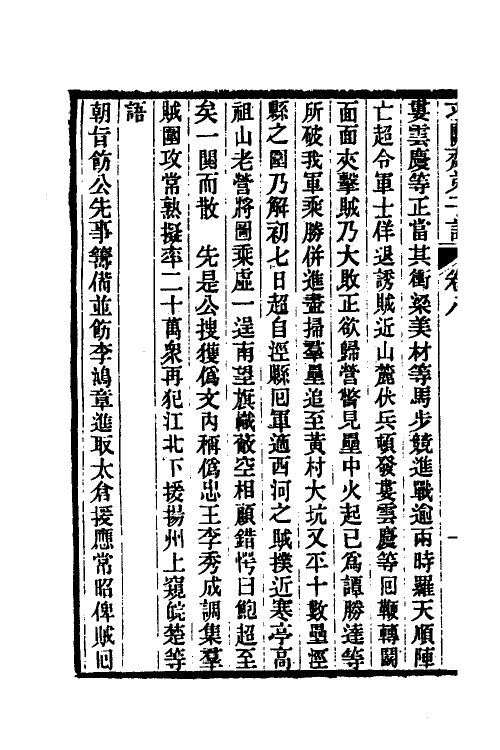 求闕齋弟子記 卷八 一
婁雲慶等正當其衝梁美材等馬步競進戰逾兩時羅天順陣
亡超令軍士佯退誘賊近山麓伏兵頓發婁雲慶等回鞭轉鬭
面面夾擊賊乃大敗正欲歸營瞥見壘中火起已爲譚勝達等
所破我軍乘勝併進盡掃羣壘追至黃村大坑又平十數壘涇
縣之圍乃解初七日超自涇縣回軍適西河之賊撲近寒亭高
祖山老營將圖乘虛一逞南望旗幟蔽空相顧錯愕曰鮑超至
矣一鬨而散 先是公搜獲僞文內稱僞忠王李秀成調集羣
賊圍攻常熟擬率二十萬衆再犯江北下援揚州上窺皖楚等
語
朝旨飭公先事籌備並飭李鴻章進取太倉援應常昭俾賊回